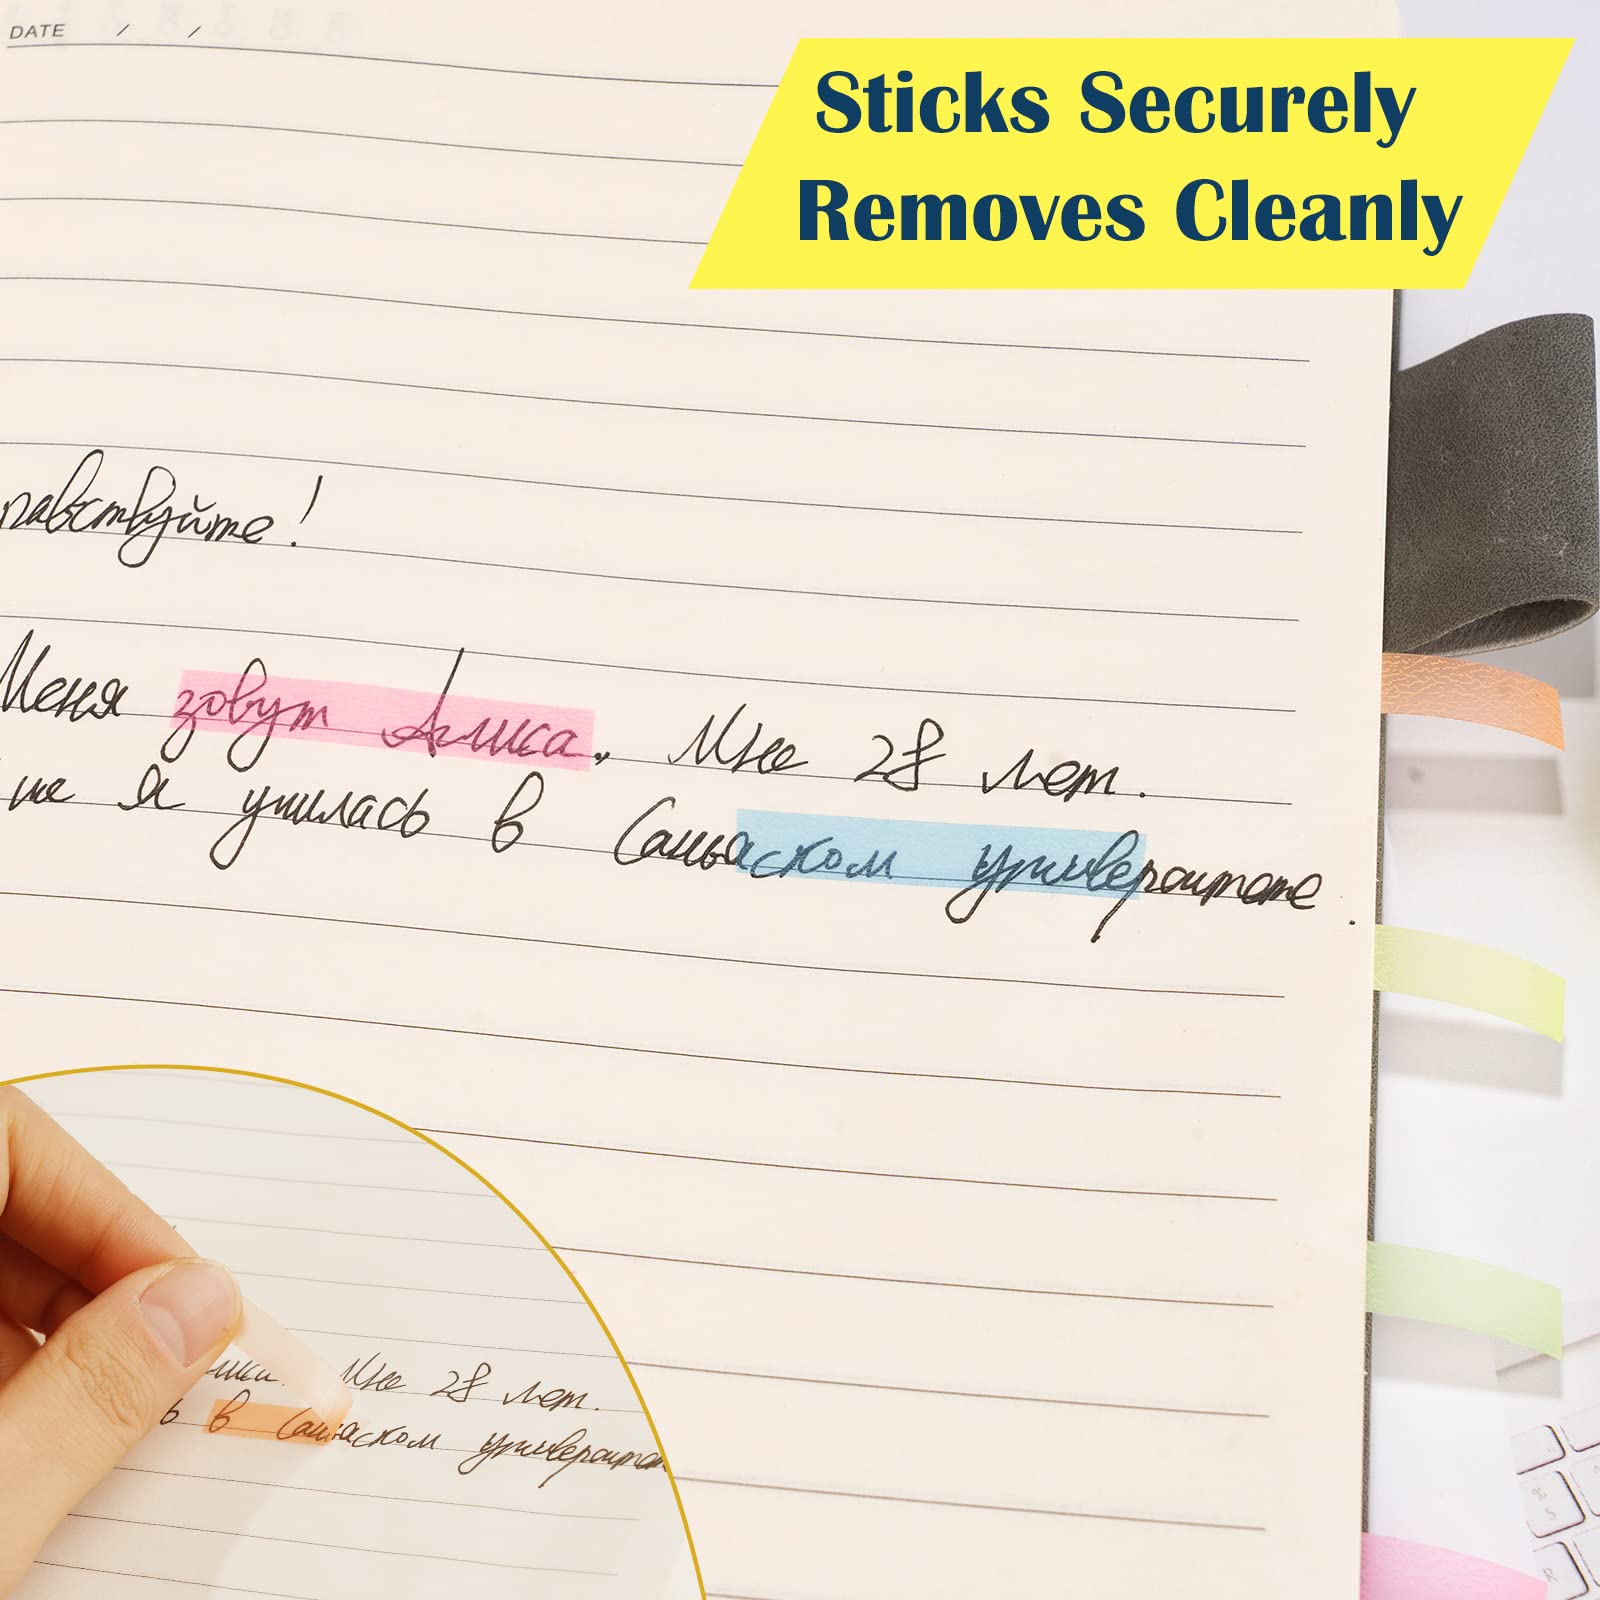 DATE / /
Sticks Securely
Removes Cleanly
равствуйте!
Меня зовут Алиса. Мне 28 лет.
я училась в Саньаском университете.
Мне 28 лет.
ь в Саньаском
S
R